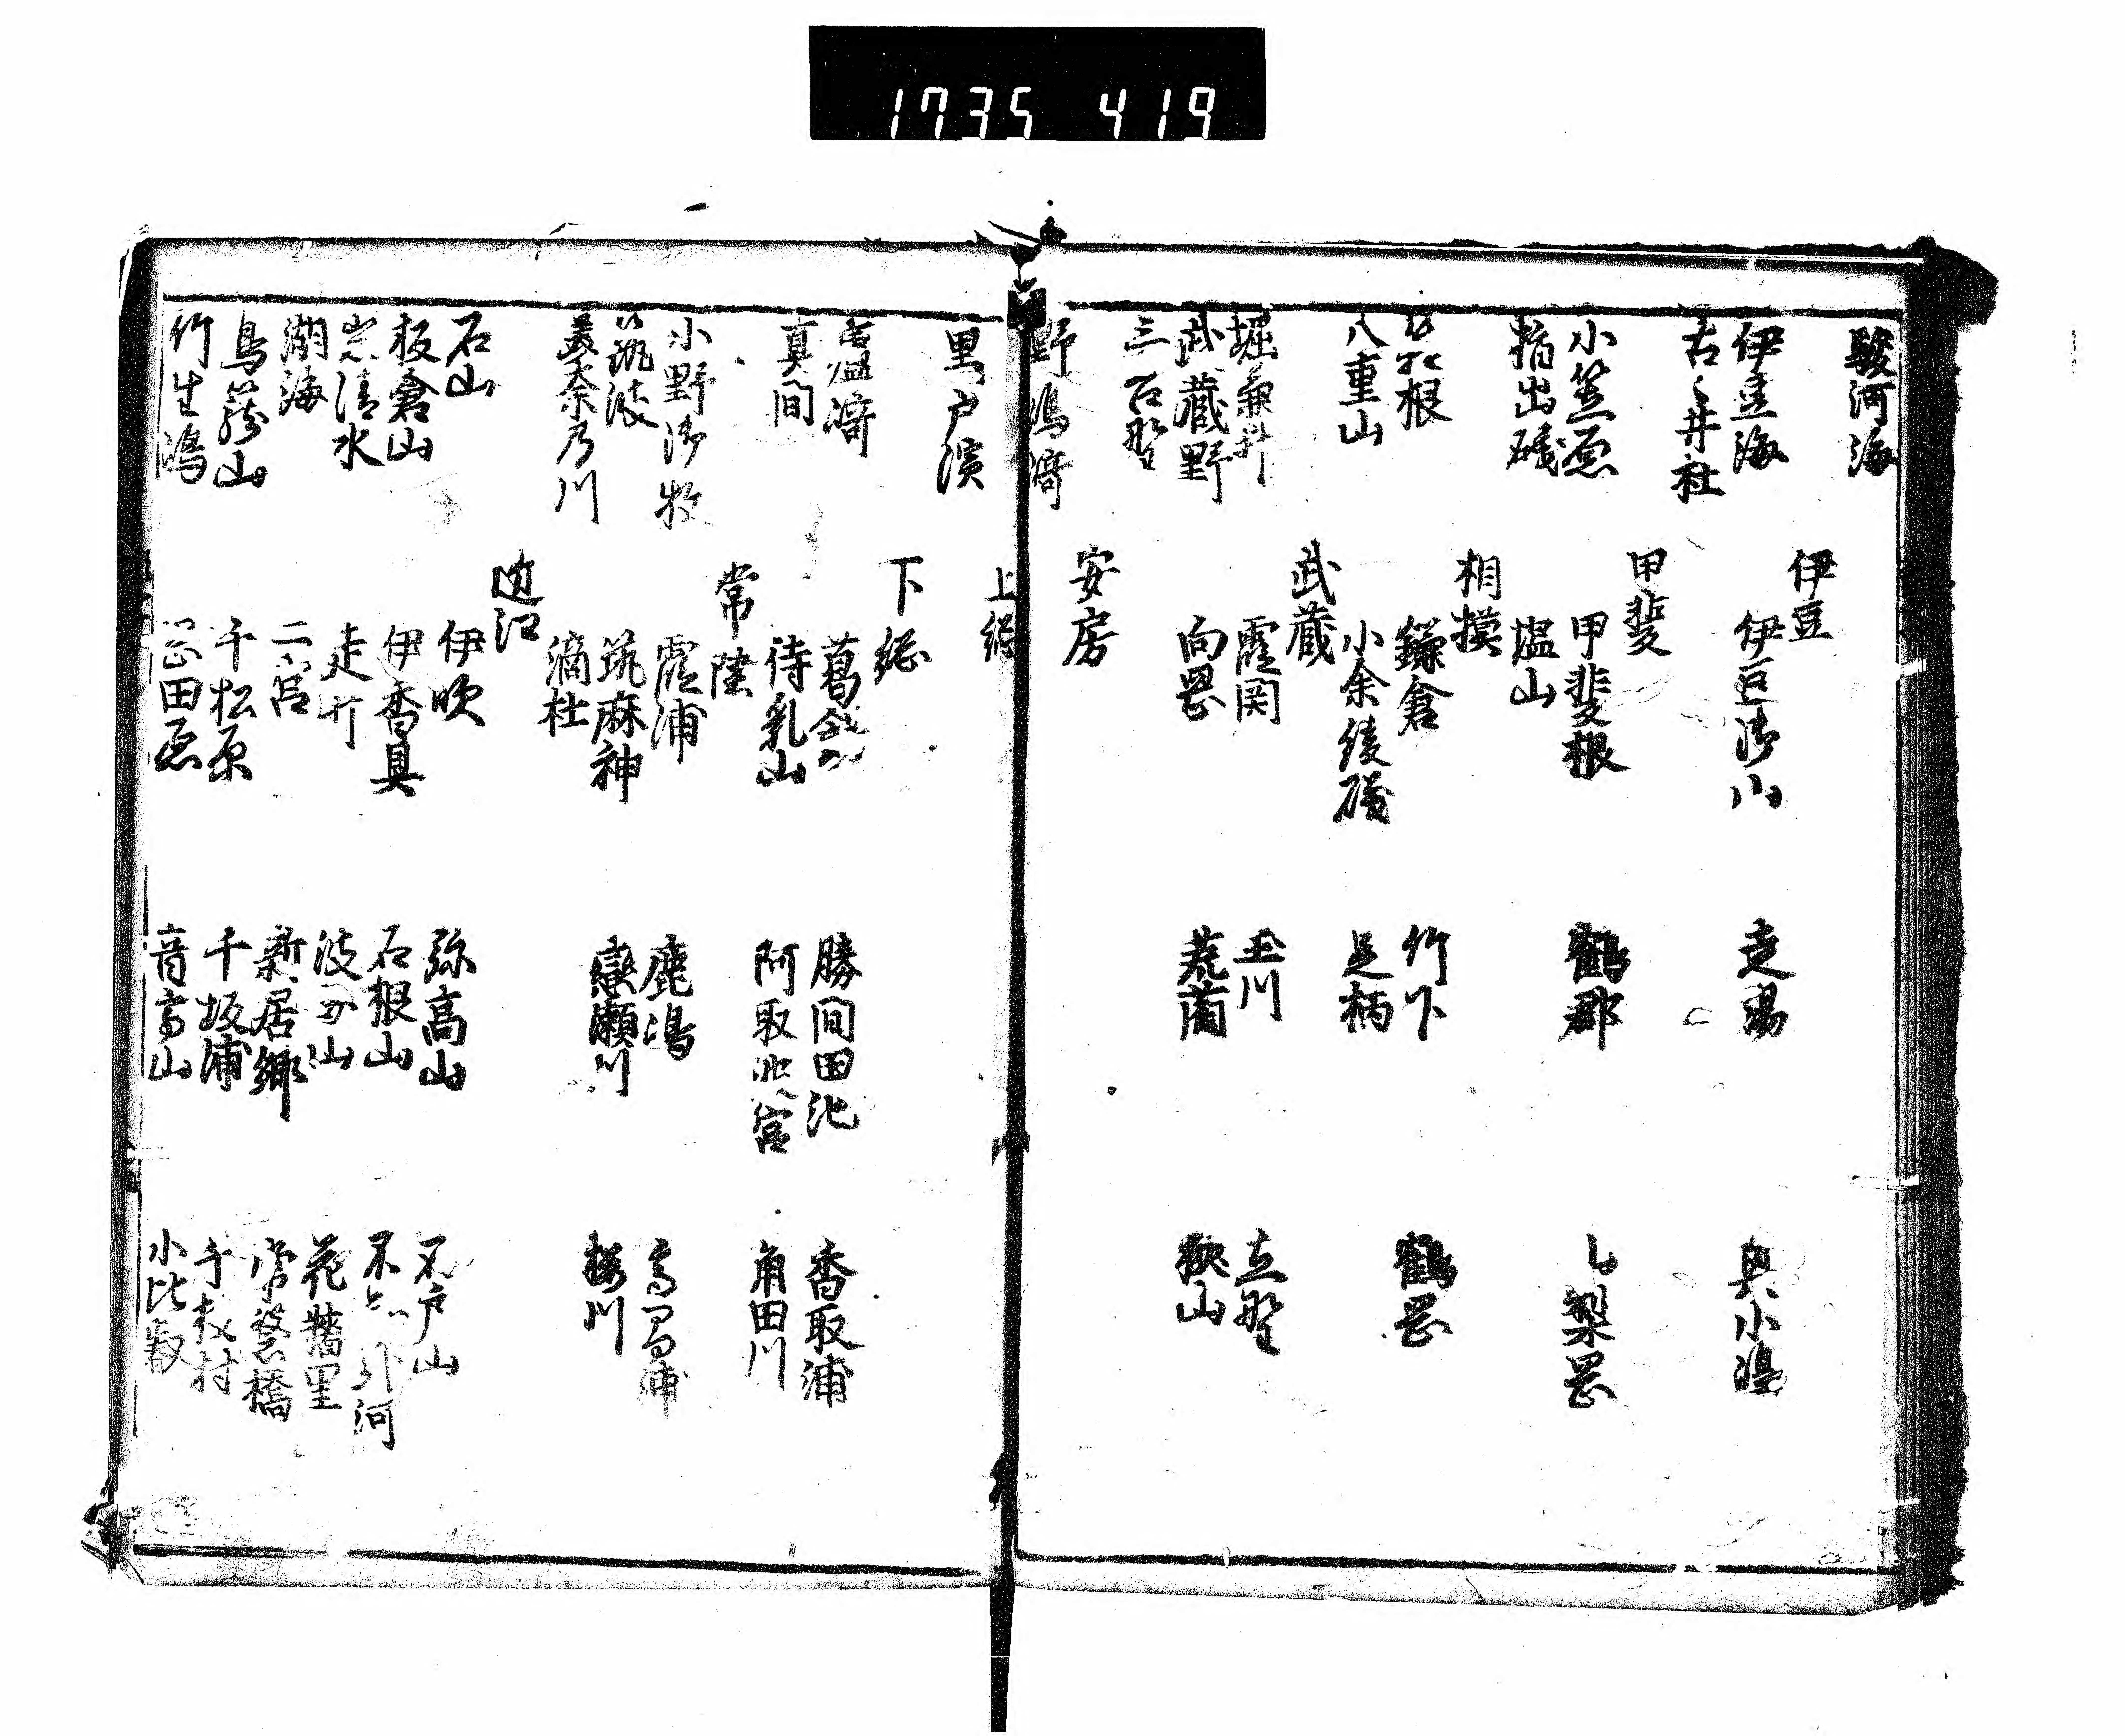 1735 419
駿河海
伊豆
伊豆海 伊豆御山 走湯 奥小嶋
古々井社
甲斐
小笠原 甲斐根 鶴郡 山梨岡
指出礒 塩山
相摸
筥根 鎌倉 竹下 鶴岡
八重山 小余綾礒 足柄
武蔵
堀兼井 霞関 玉川 立野
武蔵野 向岡 荒藺 狭山
三芳野
安房
野嶋﨑
上総
里戸濱
下総
葛餝 勝間田池 香取浦
真間 待乳山 阿取 宮 角田川
常陸
小野御牧 霞浦 鹿嶋 高間浦
筑波 筑麻神 戀瀬川 桜川
美奈乃川 滴杜
近江
石山 伊吹 弥高山 不 戸山
板倉山 伊香具 石根山 不知 河
岩清水 走井 花牆里
湖海 二宮 新居郷 常盤橋
鳥籠山 千松原 千坂浦 千 村
竹生嶋 田原 音高山 小比叡